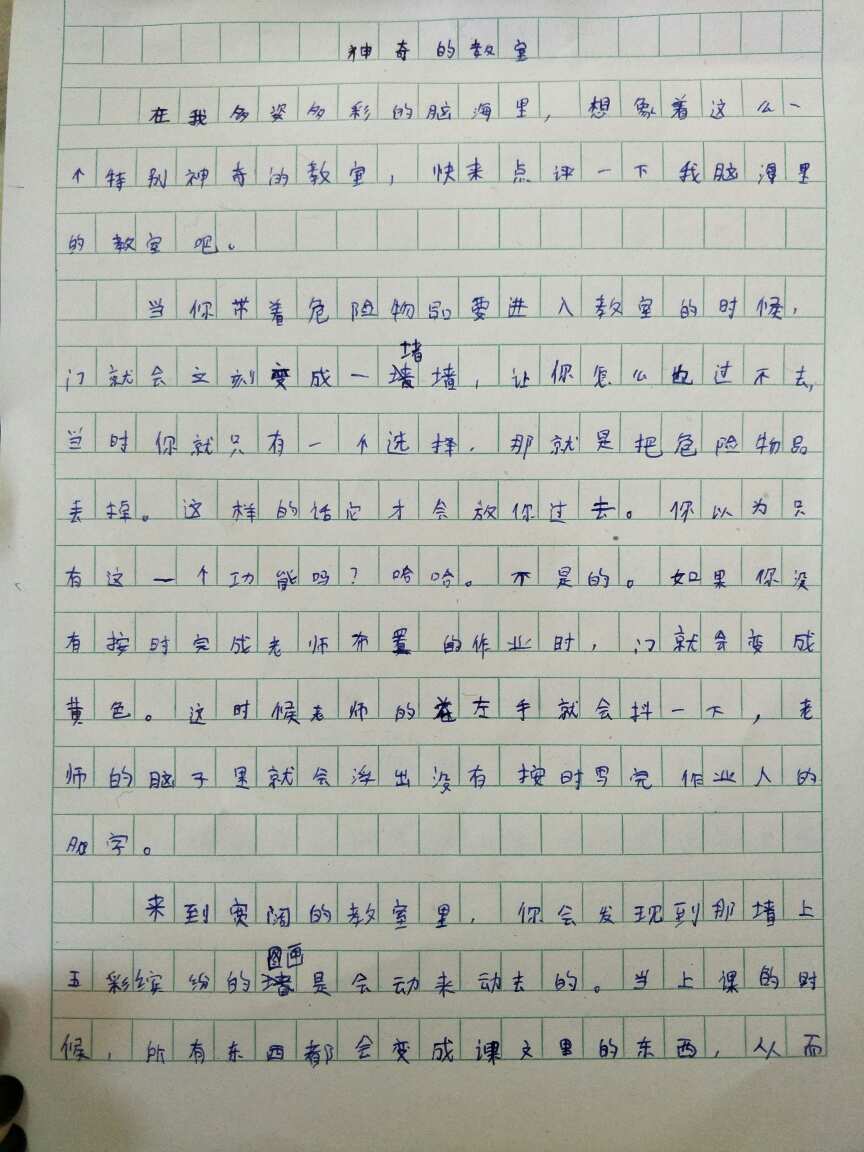 神奇的教室
在我多姿多彩的脑海里，想象着这么一
个特别神奇的教室，快来点评一下我脑海里
的教室吧。
当你带着危险物品要进入教室的时候，
门就会立刻变成一堵墙，让你怎么也过不去，
当时你就只有一个选择，那就是把危险物品
丢掉。这样的话它才会放你过去。你以为只
有这一个功能吗？哈哈。不是的。如果你没
有按时完成老师布置的作业时，门就会变成
黄色。这时候老师的左手就会抖一下，老
师的脑子里就会浮出没有按时写完作业人的
字。
来到宽阔的教室里，你会发现到那墙上
五彩缤纷的图画是会动来动去的。当上课的时
候，所有东西都会变成课文里的东西，从而